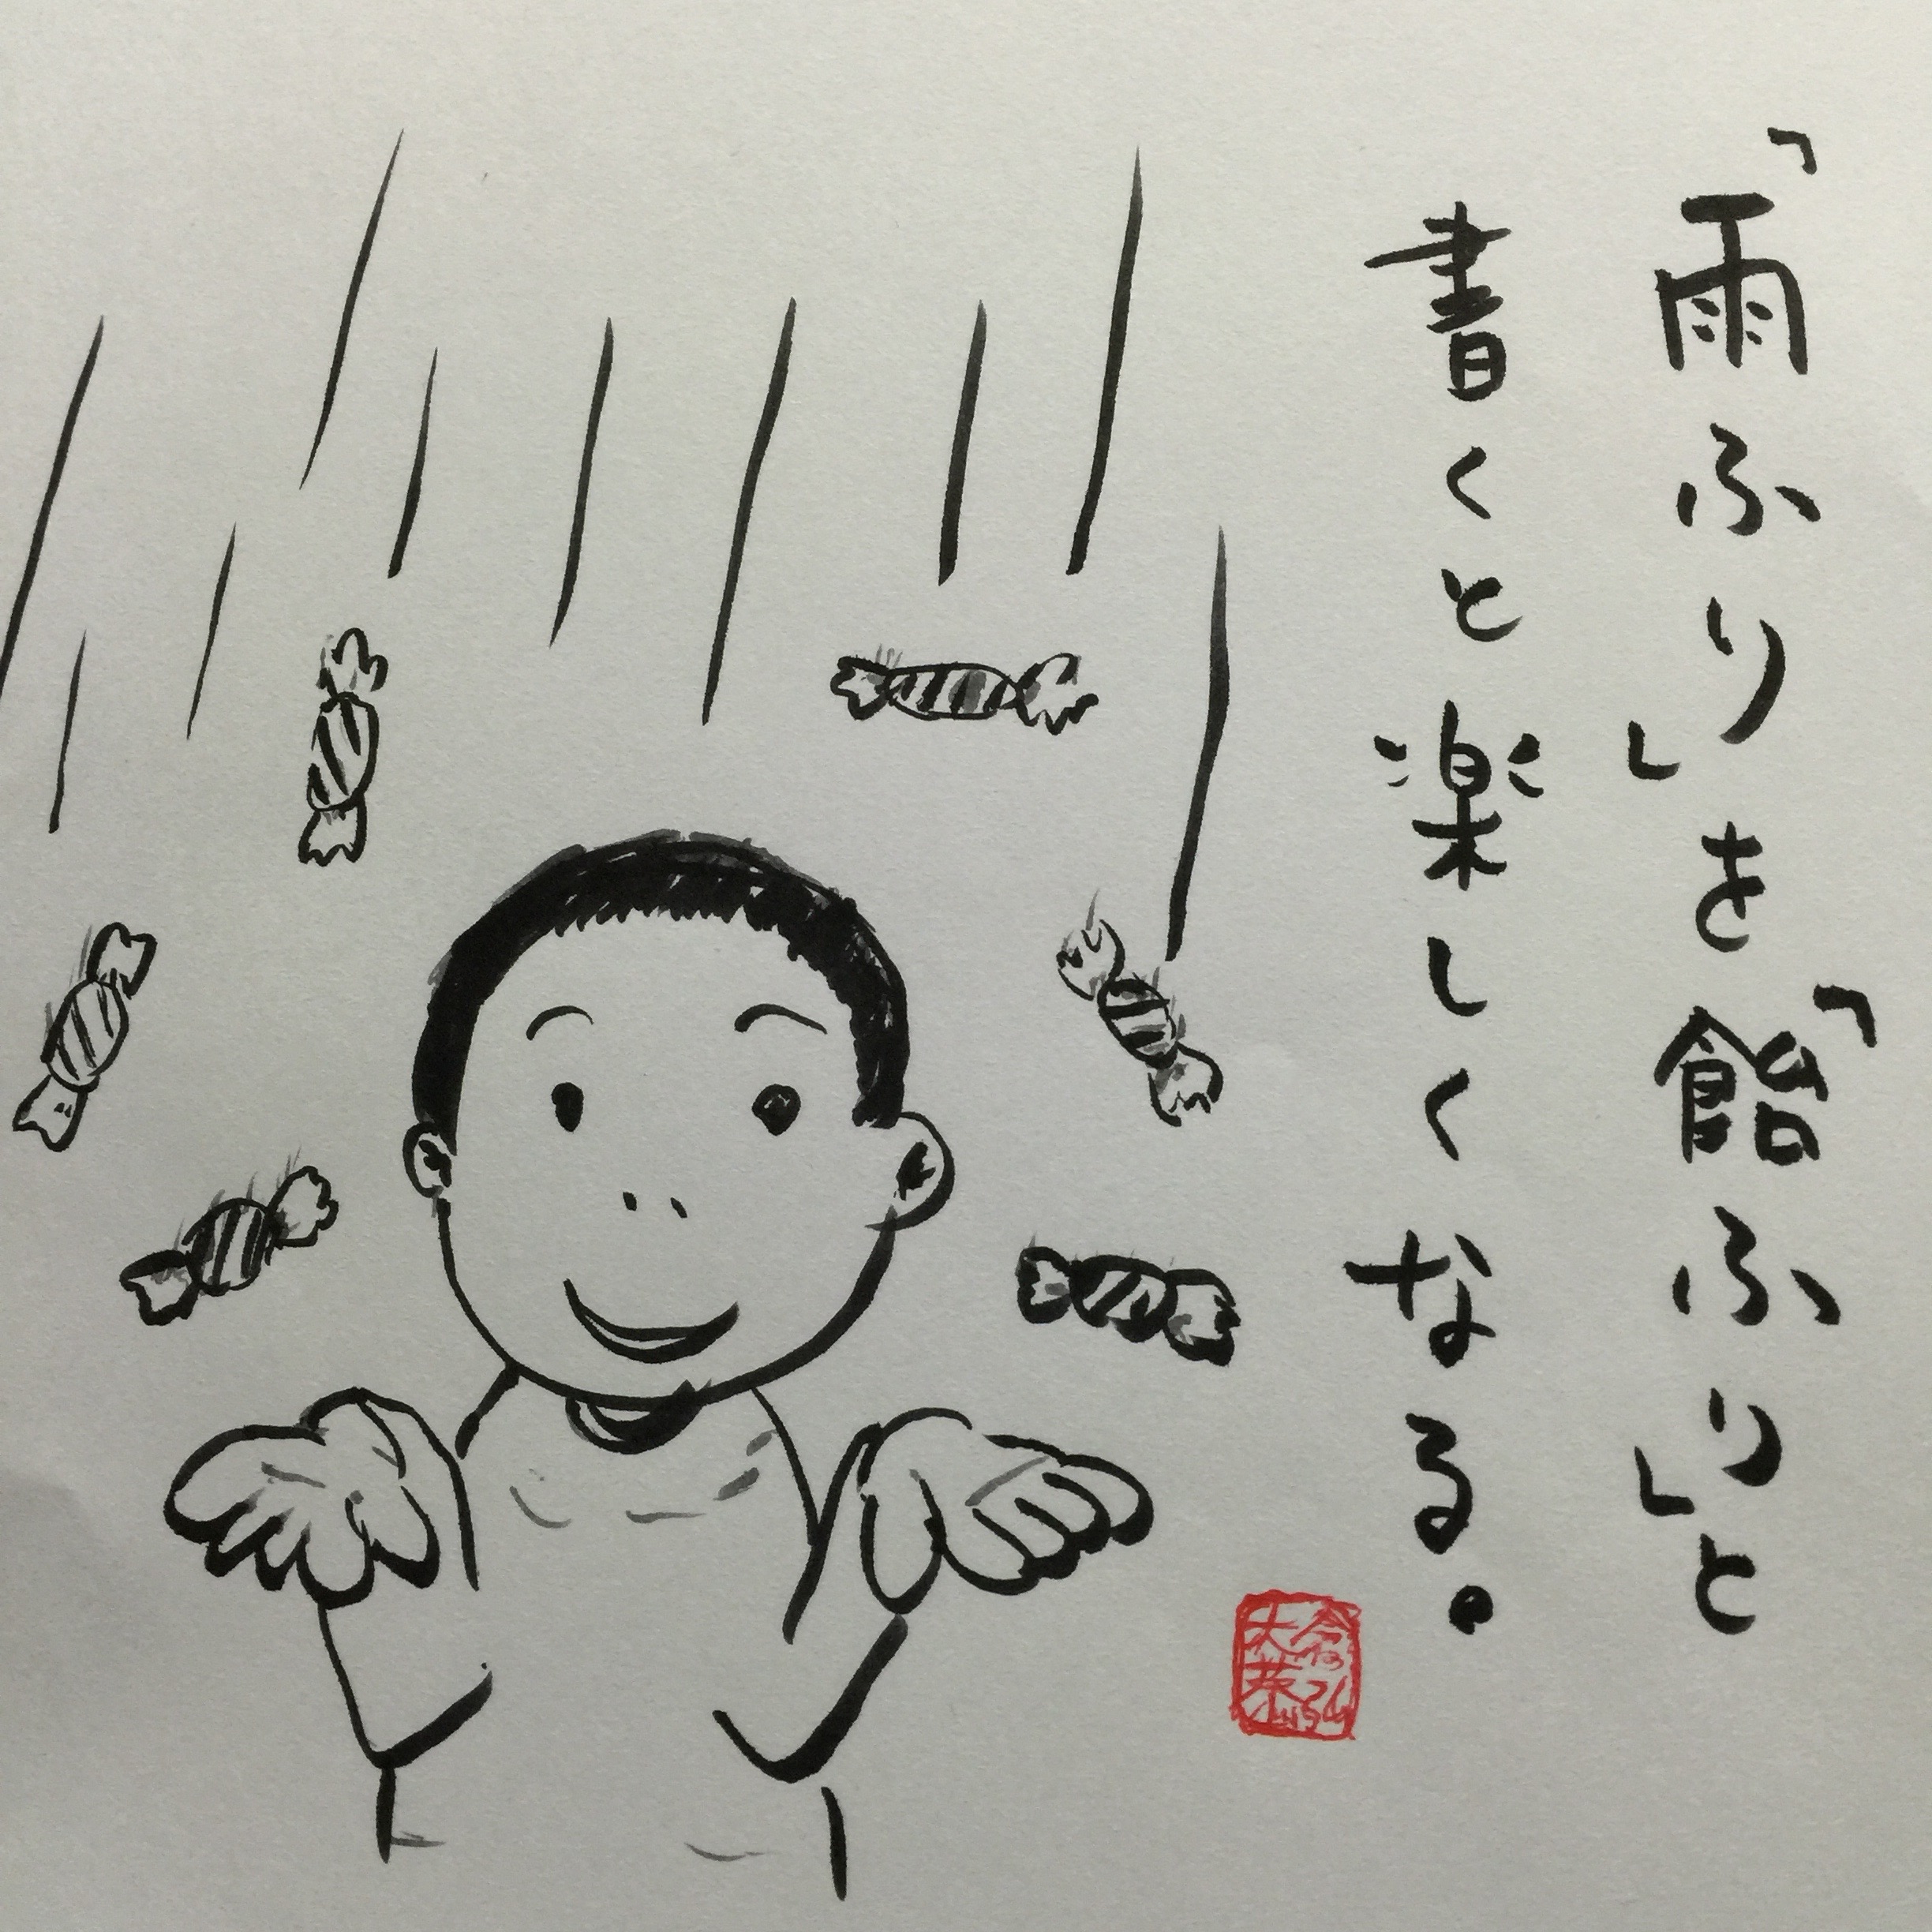 「雨ふり」を「飴ふり」と
書くと楽しくなる。